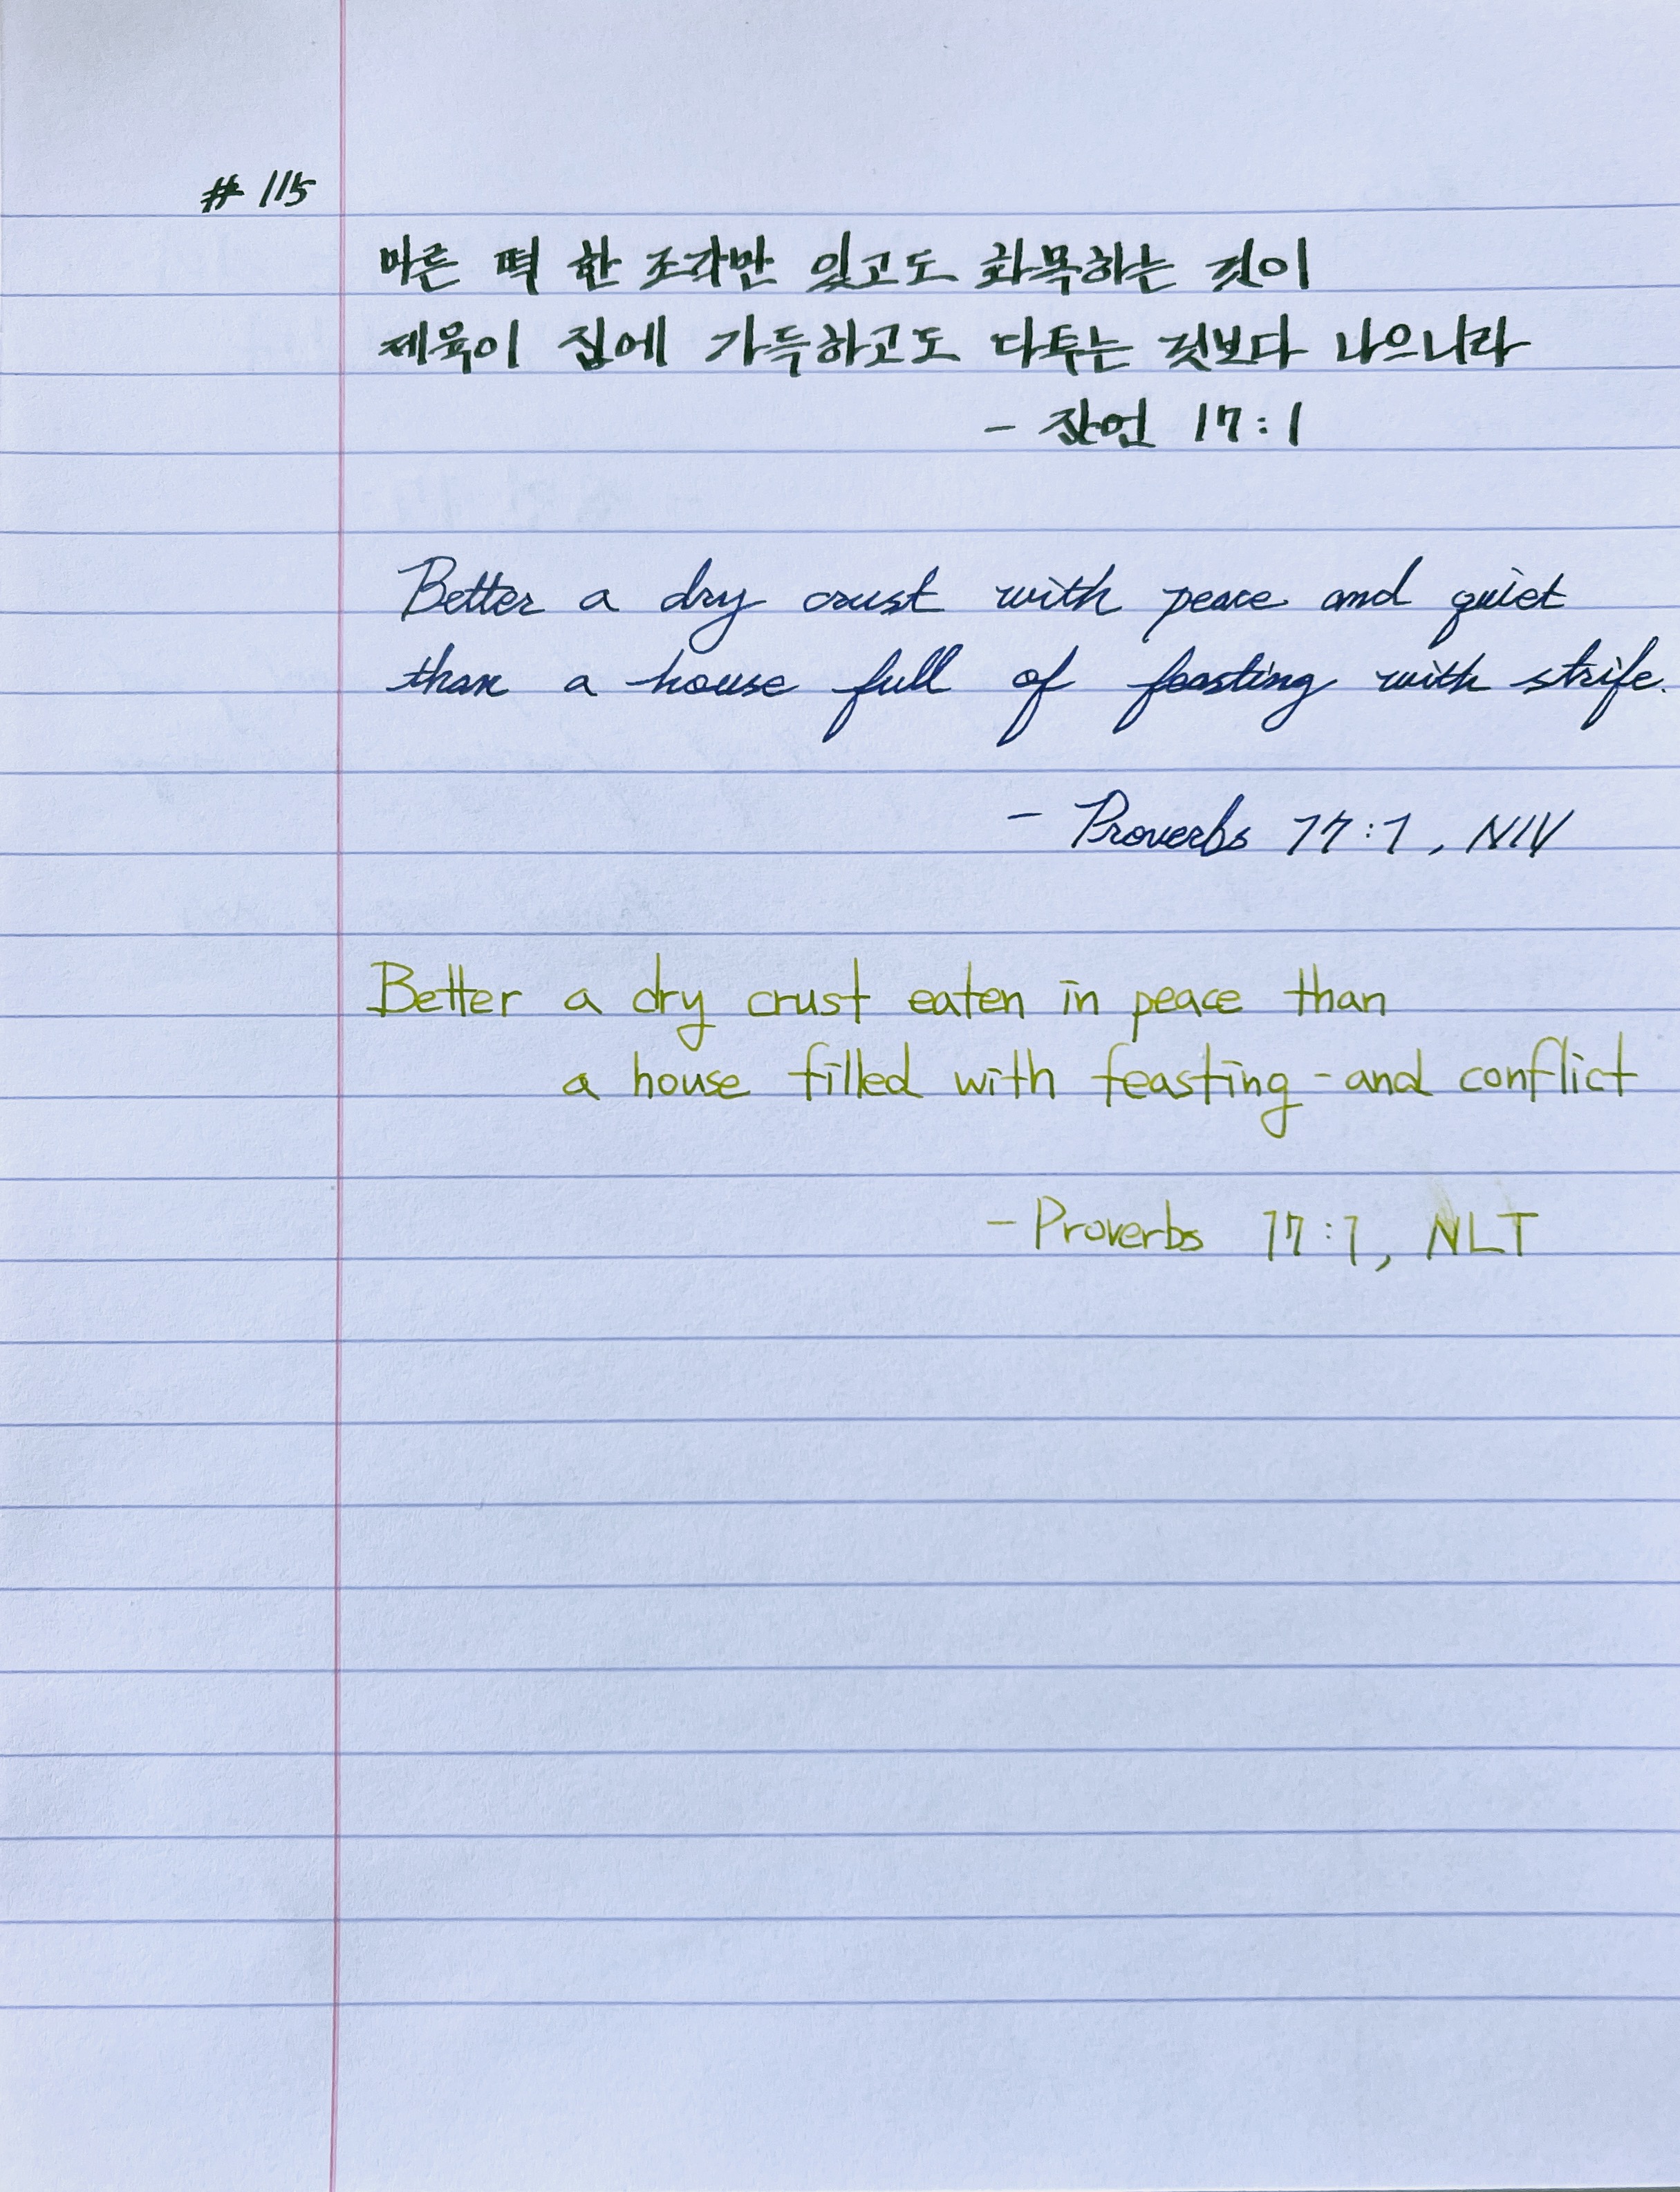 # 115
마른 떡 한 조각만 있고도 화목하는 것이
제육이 집에 가득하고도 다투는 것보다 나으니라
- 잠언 17:1
Better a dry crust with peace and quiet
than a house full of feasting with strife.
- Proverbs 17:1, NIV
Better a dry crust eaten in peace than
a house filled with feasting - and conflict
- Proverbs 17:1, NLT